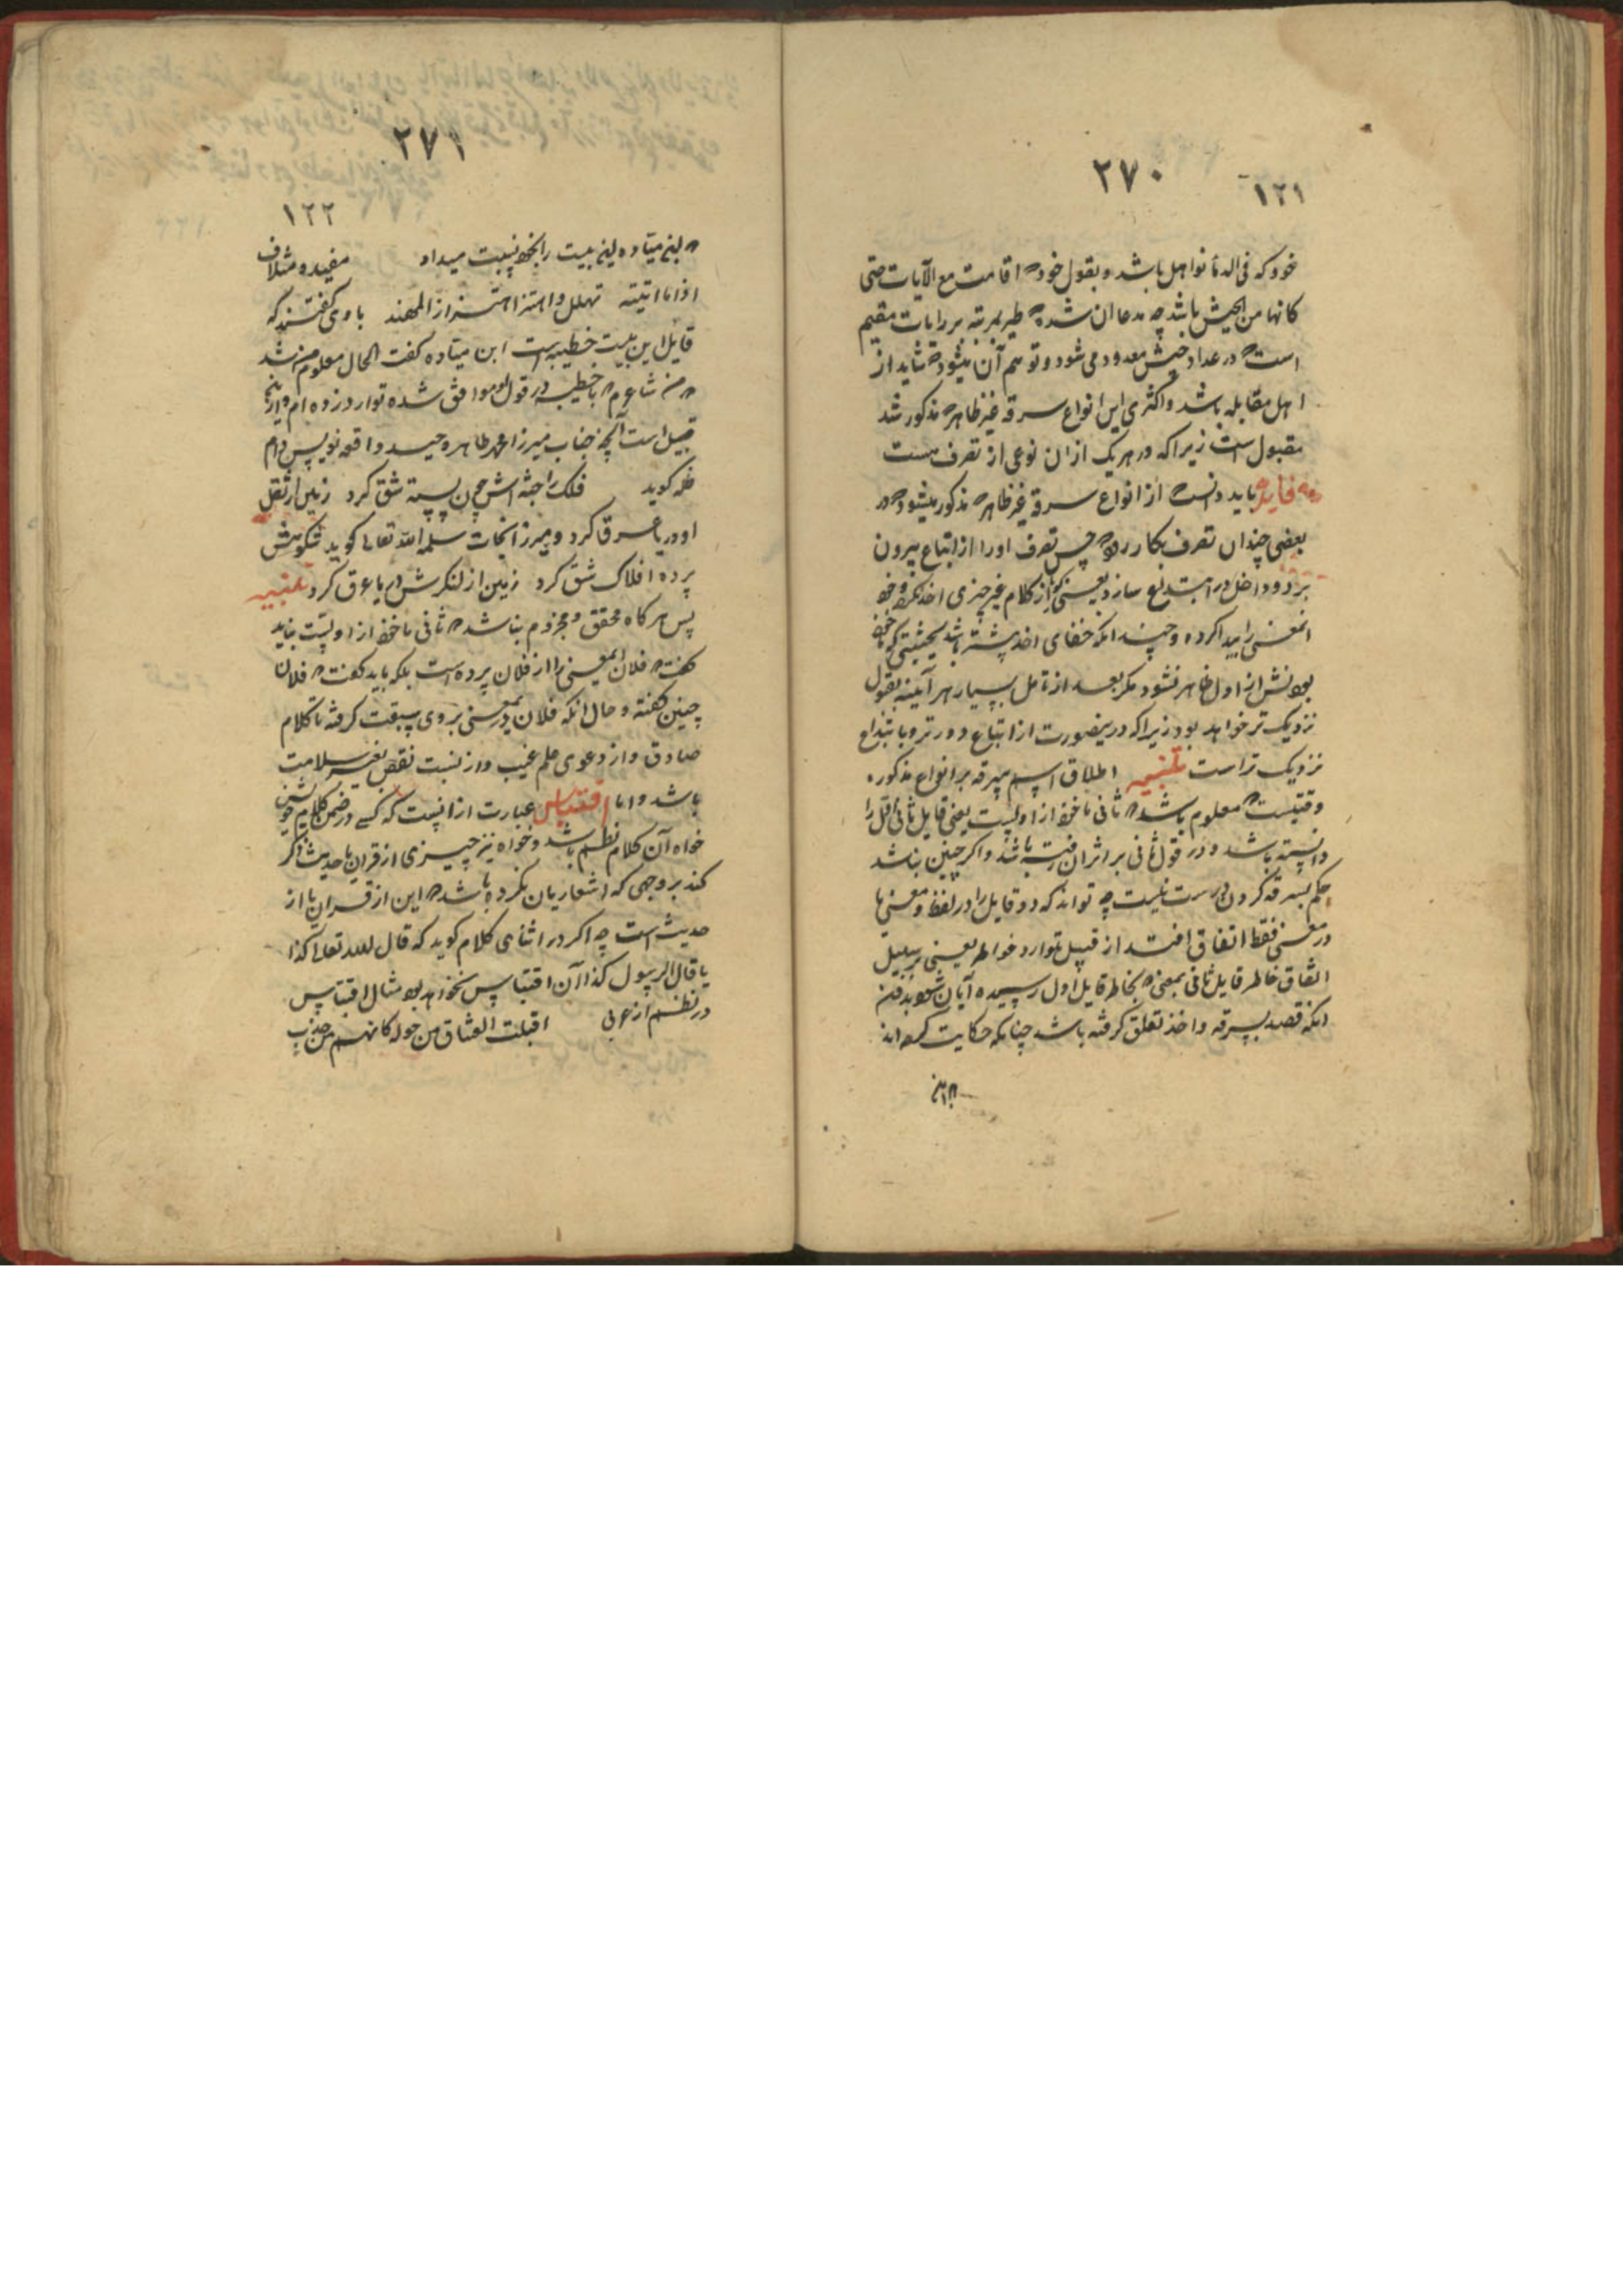 ۲۷۰
۱۲۱
خود که فی الدماء نواهل باشد و بقول خود که اقامت مع الرایات حتی
کانها من الجیش باشد چه مدعا ان شد که طیر بمرتبه بر رایات مقیم
است که در عداد جیش معدود می شود و توهم آن میشود که شاید از
اهل مقابله باشد و اکثری این انواع سرقه غیر ظاهر که مذکور شد
مقبول است زیرا که در هر یک از ان نوعی از تصرف هست
فایده باید دانست که از انواع سرقه غیر ظاهر که مذکور میشود که در
بعضی چندان تصرف بکار رود که حسن تصرف او را از اتباع بیرون
برد و داخل در ابتداع سازد یعنی از کلام غیر چیزی اخذ نکرده و خود
انمعنی را پیدا کرده و چندانکه خفای اخذ بیشتر باشد بحیثیتی که ماخوذ
بودنش از اول ظاهر نشود مکر بعد از تامل بسیار هر آینه بقبول
نزدیک تر خواهد بود زیرا که درینصورت از اتباع دورتر و بابتداع
نزدیک تر است تنبیه اطلاق اسم سرقه بر انواع مذکوره
وقتیست که معلوم باشد که ثانی ماخوذ از اولیست یعنی قایل ثانی اول را
دانسته باشد و در قول ثانی بر اثر ان رفته باشد و اکر چنین نباشد
حکم بسرقه کردن درست نیست چه تواند که دو قایل را در لفظ و معنی یا
در معنی فقط اتفاق افتد از قبیل توارد خواطر یعنی بر سبیل
اتفاق خاطر قایل ثانی بمعنی که بخاطر قایل اول رسیده آیان شود بدون
انکه قصد بسرقه و اخذ تعلق کرفته باشد چنانکه حکایت کرده اند
۲۷۱
۱۲۲
که ابن میاده این بیت را بخود نسبت میداد مفید و متلاف
اذا ما اتیته تهلل و اهتز اهتزاز المهند باو گفتند که
قایل این بیت حطیئه است ابن میاده کفت الحال معلوم من شد
که من شاعرم که با حطیئه در قول او موافق شده توارد زده ام و از اینجا
قبیل است آنچه جناب میرزا محمد طاهر وحید واقعه نویس دام
ظله کوید فلک را جثه اش چون پسته شق کرد زمین از ثقل
او دریا عرق کرد و میرزا نجات سلمه الله تعالی کوید شکوهش
پرده افلاک شق کرد زمین از لنکرش دریا عرق کرد تنبیه
پس هر کاه محقق و مجزوم نباشد که ثانی ماخوذ از اولیست نباید
کفت که فلان اینمعنی را از فلان برده است بلکه باید کفت که فلان
چنین کفته و حال انکه فلان در یمعنی بروی سبقت کرفته تا کلام
صادق و از دعوی علم غیب و از نسبت نقص بغیر سلامت
باشد و اما اقتباس عبارت از انیست که کسے در ضمن کلام خویش
خواه آن کلام نظم باشد و خواه نثر چیزی از قران یا حدیث ذکر
کند بر وجهی که اشعار بان نکرده باشد که این از قران یا از
حدیث است چه اکر در اثنای کلام کوید که قال الله تعالی کذا
یا قال الرسول کذا آن اقتباس نخواهد بود مثال اقتباس
در نظم از عربی اقبلت العشاق من حوله کانهم من حدب